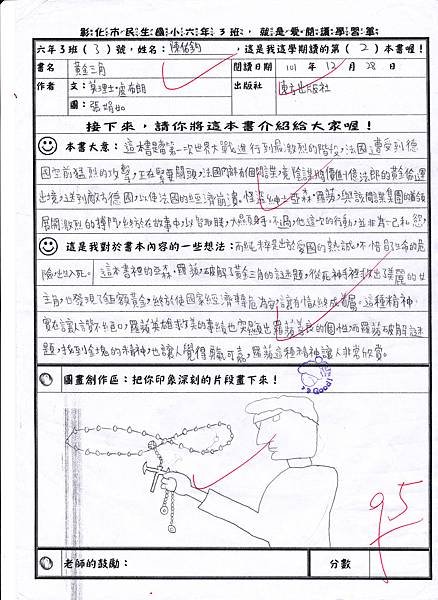 彰化市民生國小六年3班，就是愛閱讀學習單
六年3班(3)號，姓名：陳佑鈞，這是我這學期讀的第(2)本書喔！
書名 黃金三角 閱讀日期 101年12月28日
作者 文：莫理士·盧布朗 出版社 東方出版社
圖：張娟如
接下來，請你將這本書介紹給大家喔！
本書大意：這本書是第一次世界大戰進行到最激烈的階段，法國遭受到德
國空前猛烈的攻擊，正在緊要關頭，法國內部有個間諜竟陰謀將價值億法郎的黃金偷運
出境，送到敵方德國，以使法國的經濟崩潰。怪盜紳士亞森·羅蘋，與該間諜集團的首領
展開激烈的搏鬥，終於在故事中以智取勝，大顯身手。不過，他這次的行動，並非為一己私怨，
這是我對於書本內容的一些想法：而純粹是出於愛國的熱誠，不惜冒生命的危
險出生入死。這本書裡的亞森·羅蘋破解了黃金三角的謎題，從死神手裡救出了美麗的女
主角也發現了鉅額黃金，終於使國家經濟轉危為安，讓有情人終成眷屬，這種精神
實在讓人讚不絕口，羅蘋英雄救美的事績也突顯出羅蘋善良的個性，而羅蘋破解謎
題，找到金塊的精神，也讓人覺得勇氣可嘉，羅蘋這種精神讓人非常欣賞。
圖畫創作區：把你印象深刻的片段畫下來！
Good!
95
老師的鼓勵： 分數